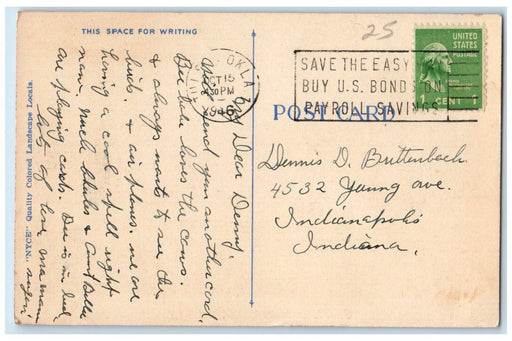 THIS SPACE FOR WRITING
My Dear Denny.
Will send you another card,
Bee Bee loves the cows.
& always wants to see the
birds. & air planes. we are
having a cool spell right
now, Uncle &
are playing cards. Dee is in bed
lots of love
"NYCE" Quality Colored Landscape Locals.
25
OKLA
OCT 15
30 PM
SAVE THE EASY
BUY U.S. BONDS ON
PAYROLL SAVINGS
UNITED
STATES
POSTAGE
1 CENT 1
POST CARD
Dennis D. Brittenbach
4532 Young ave.
Indianapolis
Indiana,